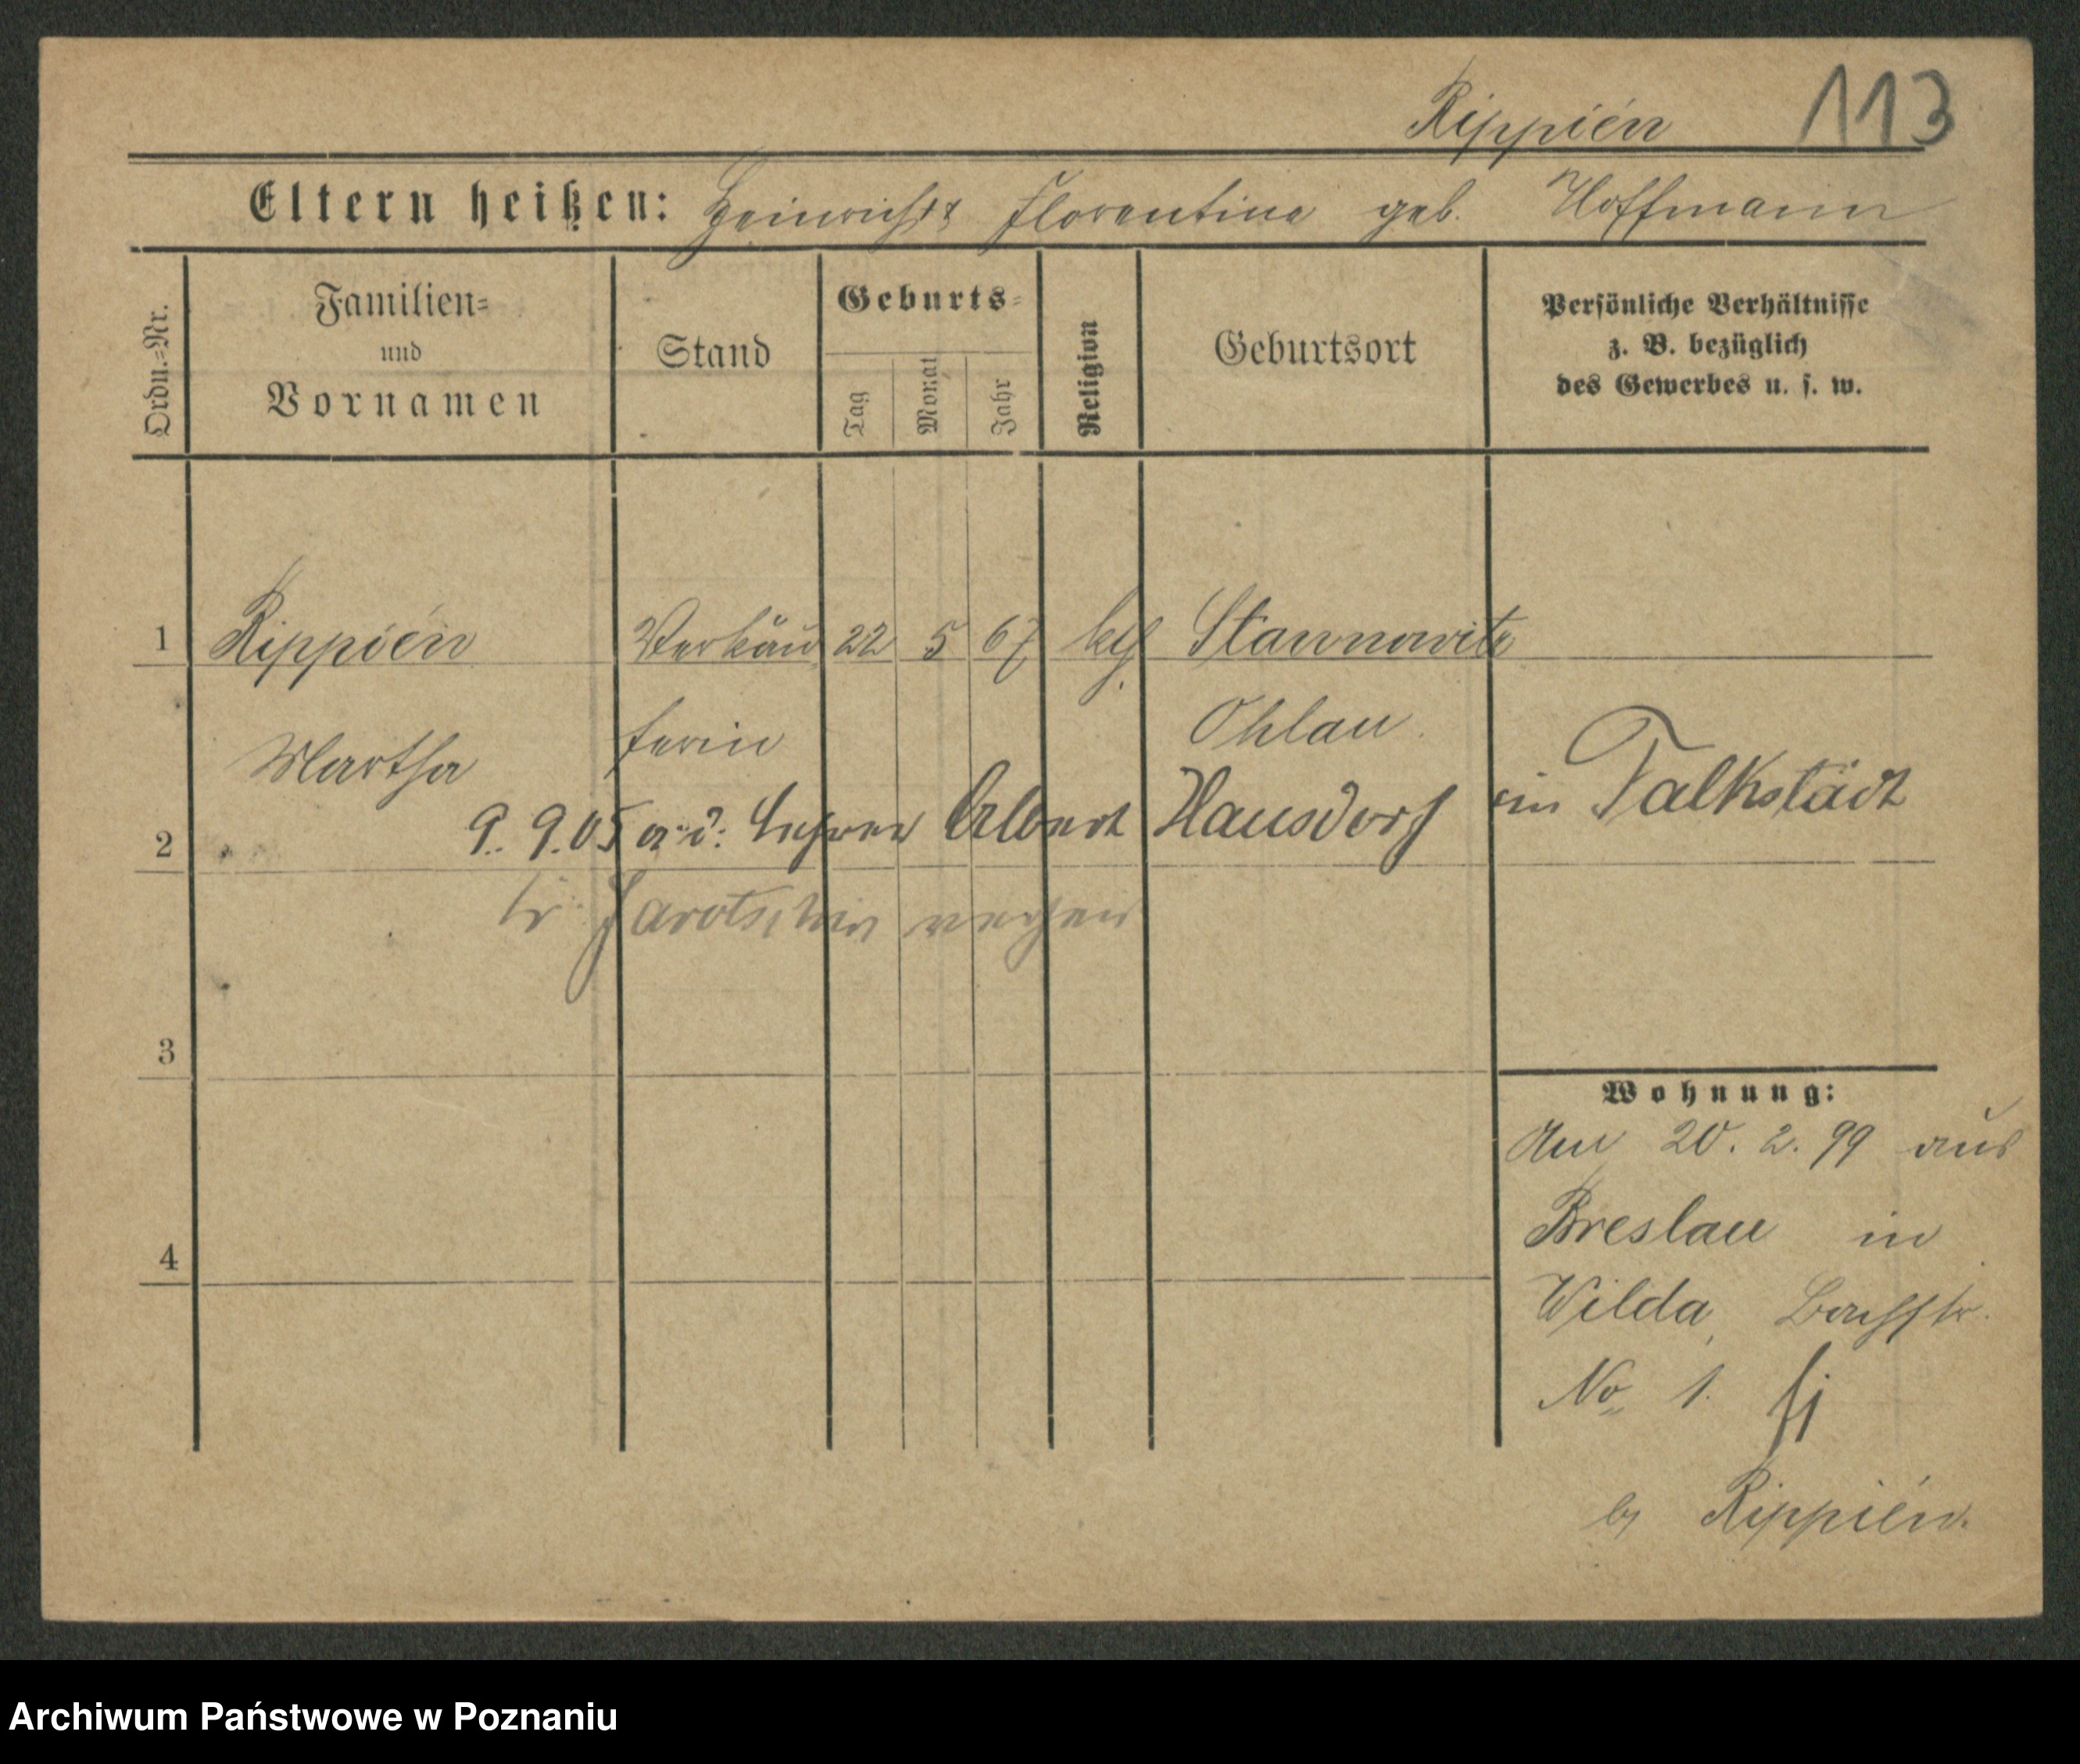 Rippién 113
Eltern heißen: Heinrich & Florentine geb. Hoffmann
Ordn.=Nr.
Familien=
und
Vornamen
Stand
Geburts=
Tag
Monat
Jahr
Religion
Geburtsort
Persönliche Verhältnisse
z. B. bezüglich
des Gewerbes u. s. w.
1 Rippién Verkäu 22 5 67 kth Stannowitz
Martha ferin Ohlau.
9. 9. 05 a. d. Lehrer Albert Hausdorf in Falkstädt
2
Kr. Jarotschin verheir
3
Wohnung:
Am 20. 2. 99 aus
Breslau in
4
Wilda, Bachstr.
No 1.
by Rippién.
Archiwum Państwowe w Poznaniu